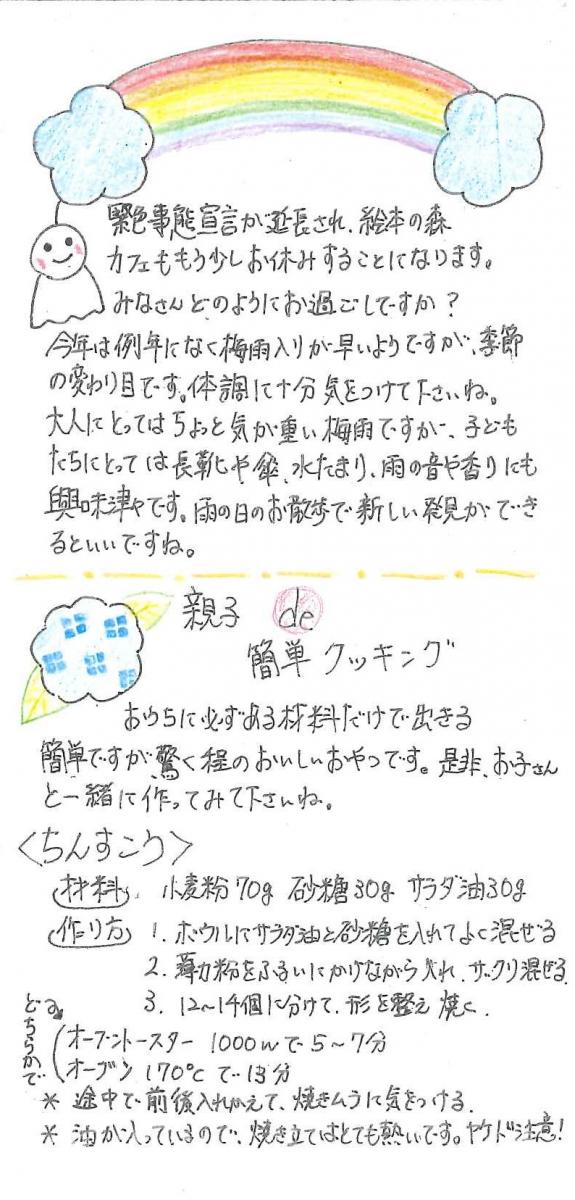 緊急事態宣言が延長され、絵本の森
カフェももう少しお休みすることになります。
みなさんどのようにお過ごしですか？
今年は例年になく梅雨入りが早いようですが、季節
の変わり目です。体調に十分気をつけて下さいね。
大人にとってはちょっと気が重い梅雨ですが、子ども
たちにとっては長靴や傘、水たまり、雨の音や香りにも
興味津々です。雨の日のお散歩で新しい発見ができ
るといいですね。
親子 de
簡単クッキング
おうちに必ずある材料だけで出きる
簡単ですが、驚く程のおいしいおやつです。是非、お子さん
と一緒に作ってみて下さいね。
<ちんすこう>
材料 小麦粉70g 砂糖30g サラダ油30g
作り方 1. ボウルにサラダ油と砂糖を入れてよく混ぜる
2. 薄力粉をふるいにかけながら入れ、サックリ混ぜる。
3. 12〜14個に分けて、形を整え焼く。
どちらかで
オーブントースター 1000wで5〜7分
オーブン 170℃で13分
* 途中で前後入れかえて、焼きムラに気をつける。
* 油が入っているので、焼き立てはとても熱いです。ヤケド注意!